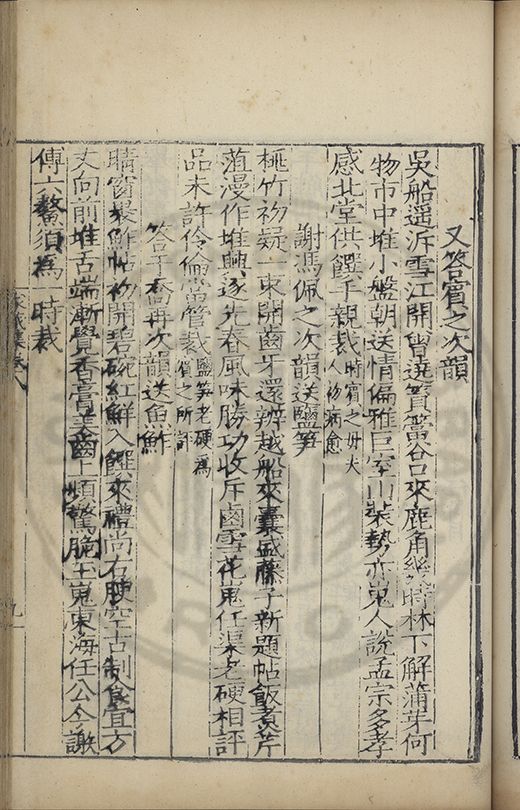 又答賓之次韻
吳船遥泝雪江開曽選篔簹谷口來鹿角幾時林下解蒲芽何
物市中堆小盤朝送情偏雅巨室山裝勢亦嵬人說孟宗多孝
感北堂供饌手親裁時賓之毋夫人初病愈
謝馮佩之次韻送鹽笋
桃竹初疑一束開齒牙還辨越船來囊盛藤子新題帖飯煑芹
葅漫作堆興逐先春風味勝功收斥鹵雪花嵬任渠老硬相評
品未許伶倫當管裁鹽笋老硬為賓之所評
答于喬再次韻送魚鮓
晴窗裂鮓帖初開碧碗紅鮮入饌來禮尚右腴空古制食宜方
丈向前堆舌端漸覺香膏美齒上頻驚脆至嵬東海任公今謝
傳六鰲須為一時裁
家藏集卷八
九